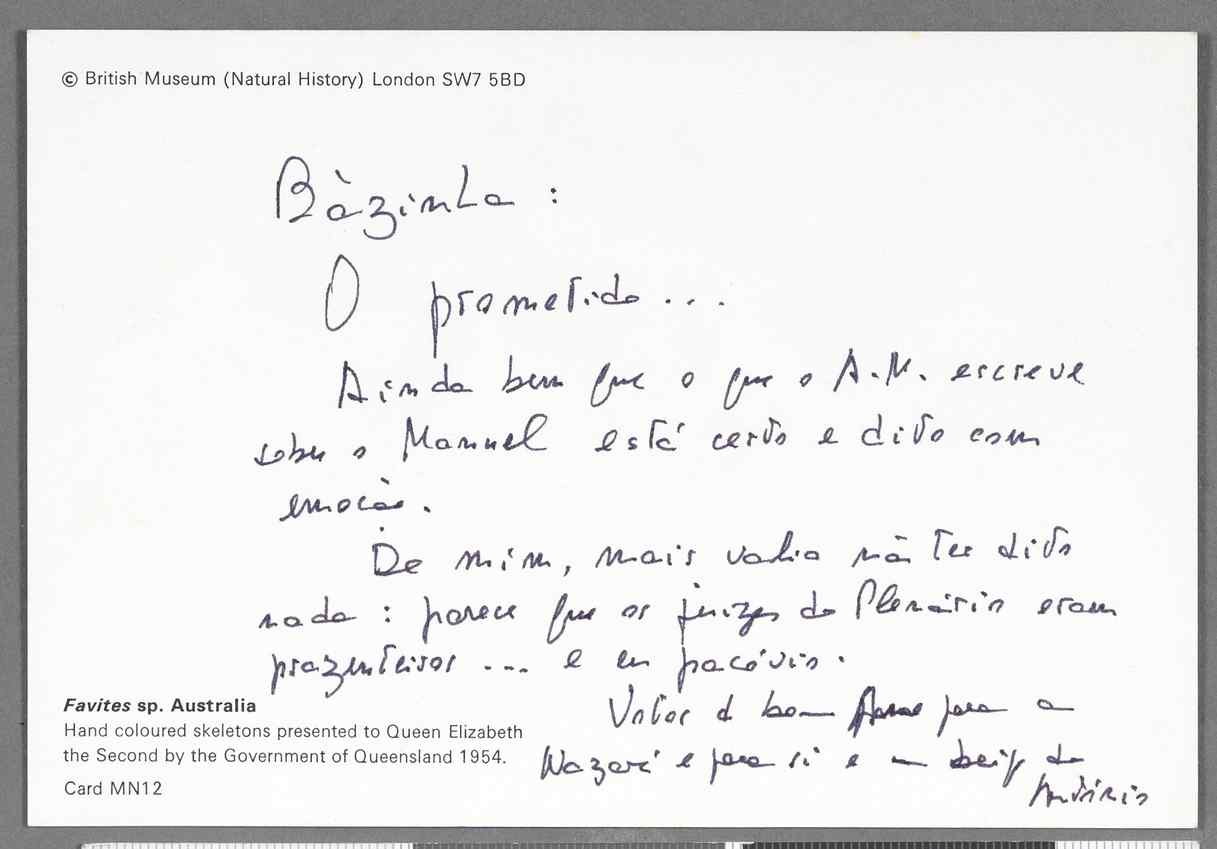 © British Museum (Natural History) London SW7 5BD
Bàzinha :
O prometido ...
Ainda bem que o que o A.M. escreve
sobre o Manuel está certo e dito com
emoção.
De mim, mais valia não ter dito
nada : parece que os juizes do Plenário eram
prazenteiros ... e eu pacóvio.
Votos d bom para a
Nazaré e para si e um beijo do
António
Favites sp. Australia
Hand coloured skeletons presented to Queen Elizabeth
the Second by the Government of Queensland 1954.
Card MN12